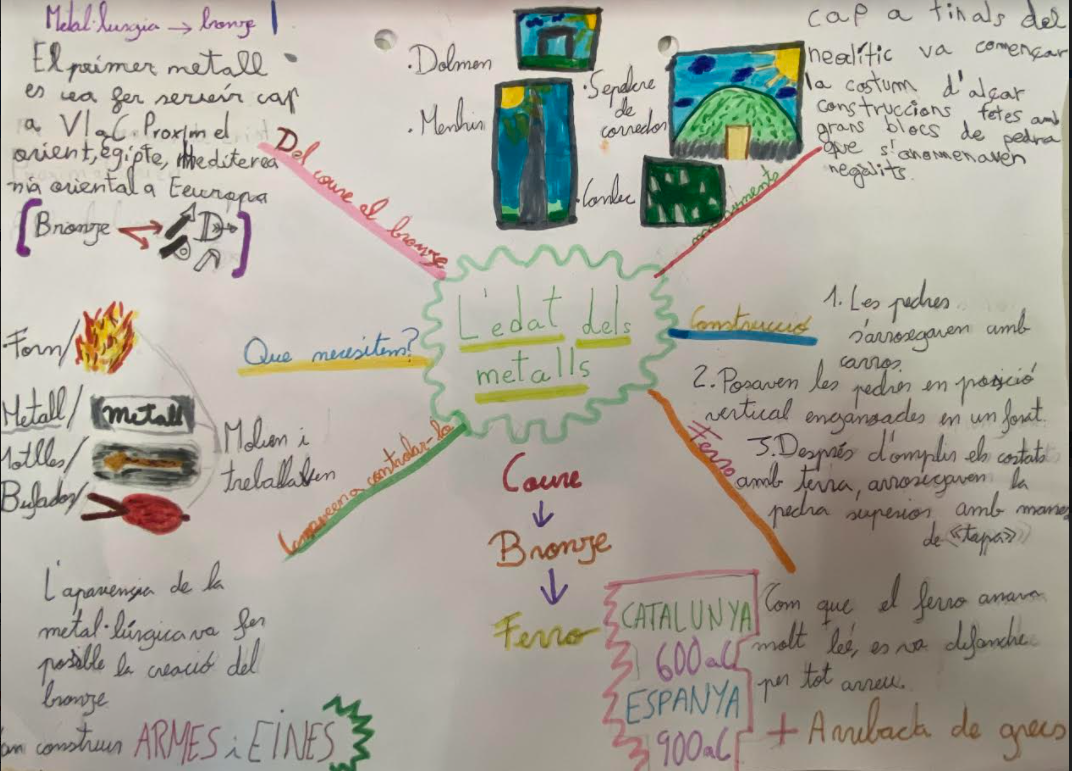 Metal·lurgia → bronze
El primer metall
es va fer servir cap
a VI aC Pròxim el
orient, egipte, mediterra
nia oriental a Eeuropa
[Bronze
Del coure al bronze
.Dolmen
.Menhir
.Sepulcre
de
corredor
.Comlec
cap a finals del
neolític va començar
la costum d'alçar
construccions fetes amb
grans blocs de pedra
que s'anomenaven
negàlits.
L'edat dels
metalls
Que necesitem?
Forn/
Metall/ metall
Motlles/
Bufador/
Molien i
treballaven
Construcció
1. Les pedres
s'arrosegaven amb
carros.
2. Posaven les pedres en posició
vertical enganxades en un forat.
3. Després d'omplir els costats
amb terra, arrosegaven la
pedra superior amb manera
de «tapa»
controlar-lo
Coure
↓
Bronze
↓
Ferro
L'apariensia de la
metal·lúrgica va fer
posible la creació del
bronze
an construir ARMES i EINES
Ferro
CATALUNYA
600 aC
ESPANYA
900 aC
Com que el ferro anava
molt bé, es va
per tot arreu.
+ Arribada de grecs